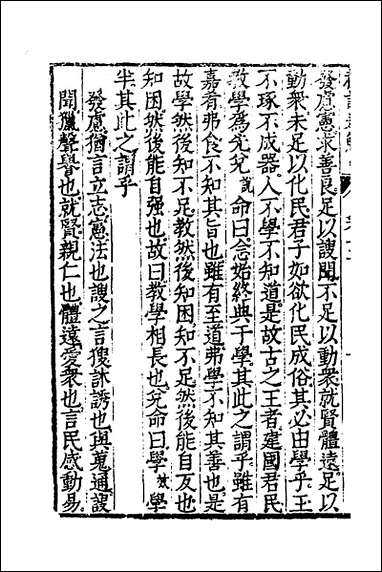 發慮憲求善良足以謏聞不足以動衆就賢體遠足以
動衆未足以化民君子如欲化民成俗其必由學乎玉
不琢不成器人不學不知道是故古之王者建國君民
教學爲先兌說命曰念始終典于學其此之謂乎雖有
嘉肴弗食不知其旨也雖有至道弗學不知其善也是
故學然後知不足教然後知困知不足然後能自反也
知困然後能自强也故曰教學相長也兌命曰學學
半其此之謂乎
發慮猶言立志憲法也謏之言獀訹誘也與蒐通謏
聞獵聲譽也就賢親仁也體遠愛衆也言民感動易